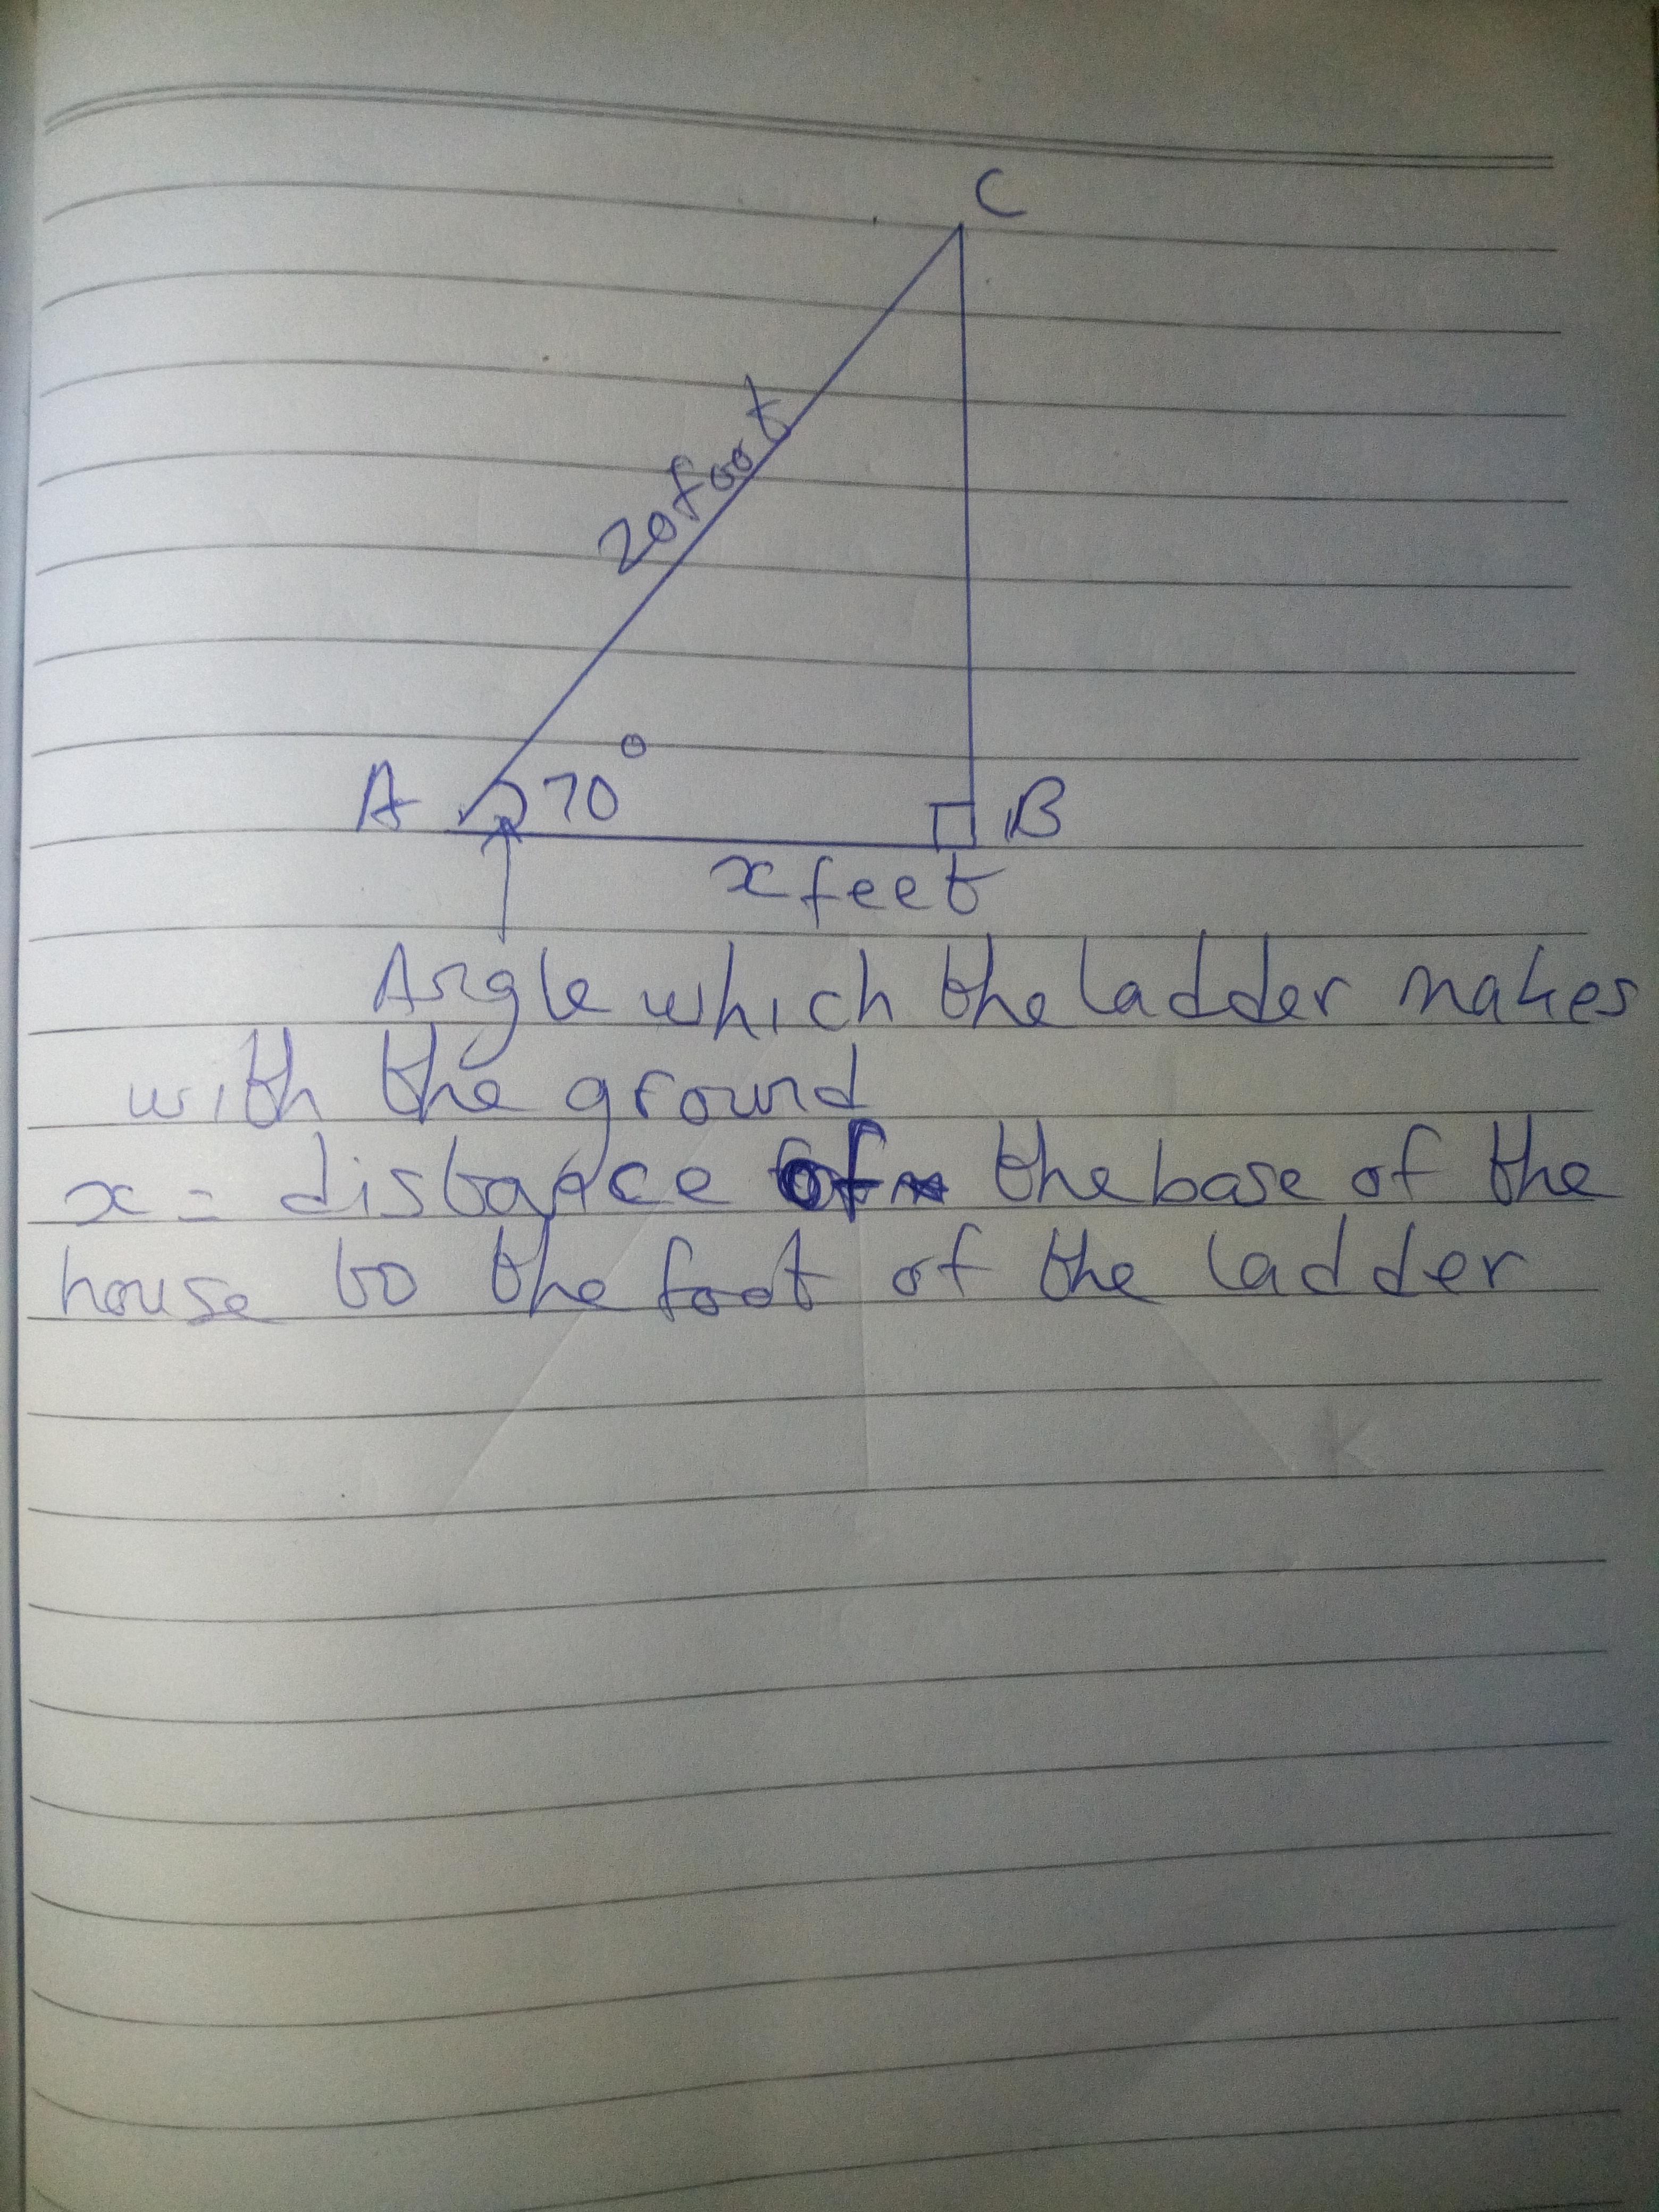 C
20foot
A 70° B
x feet
Angle which the ladder makes
with the ground
x = distance of the base of the
house to the foot of the ladder